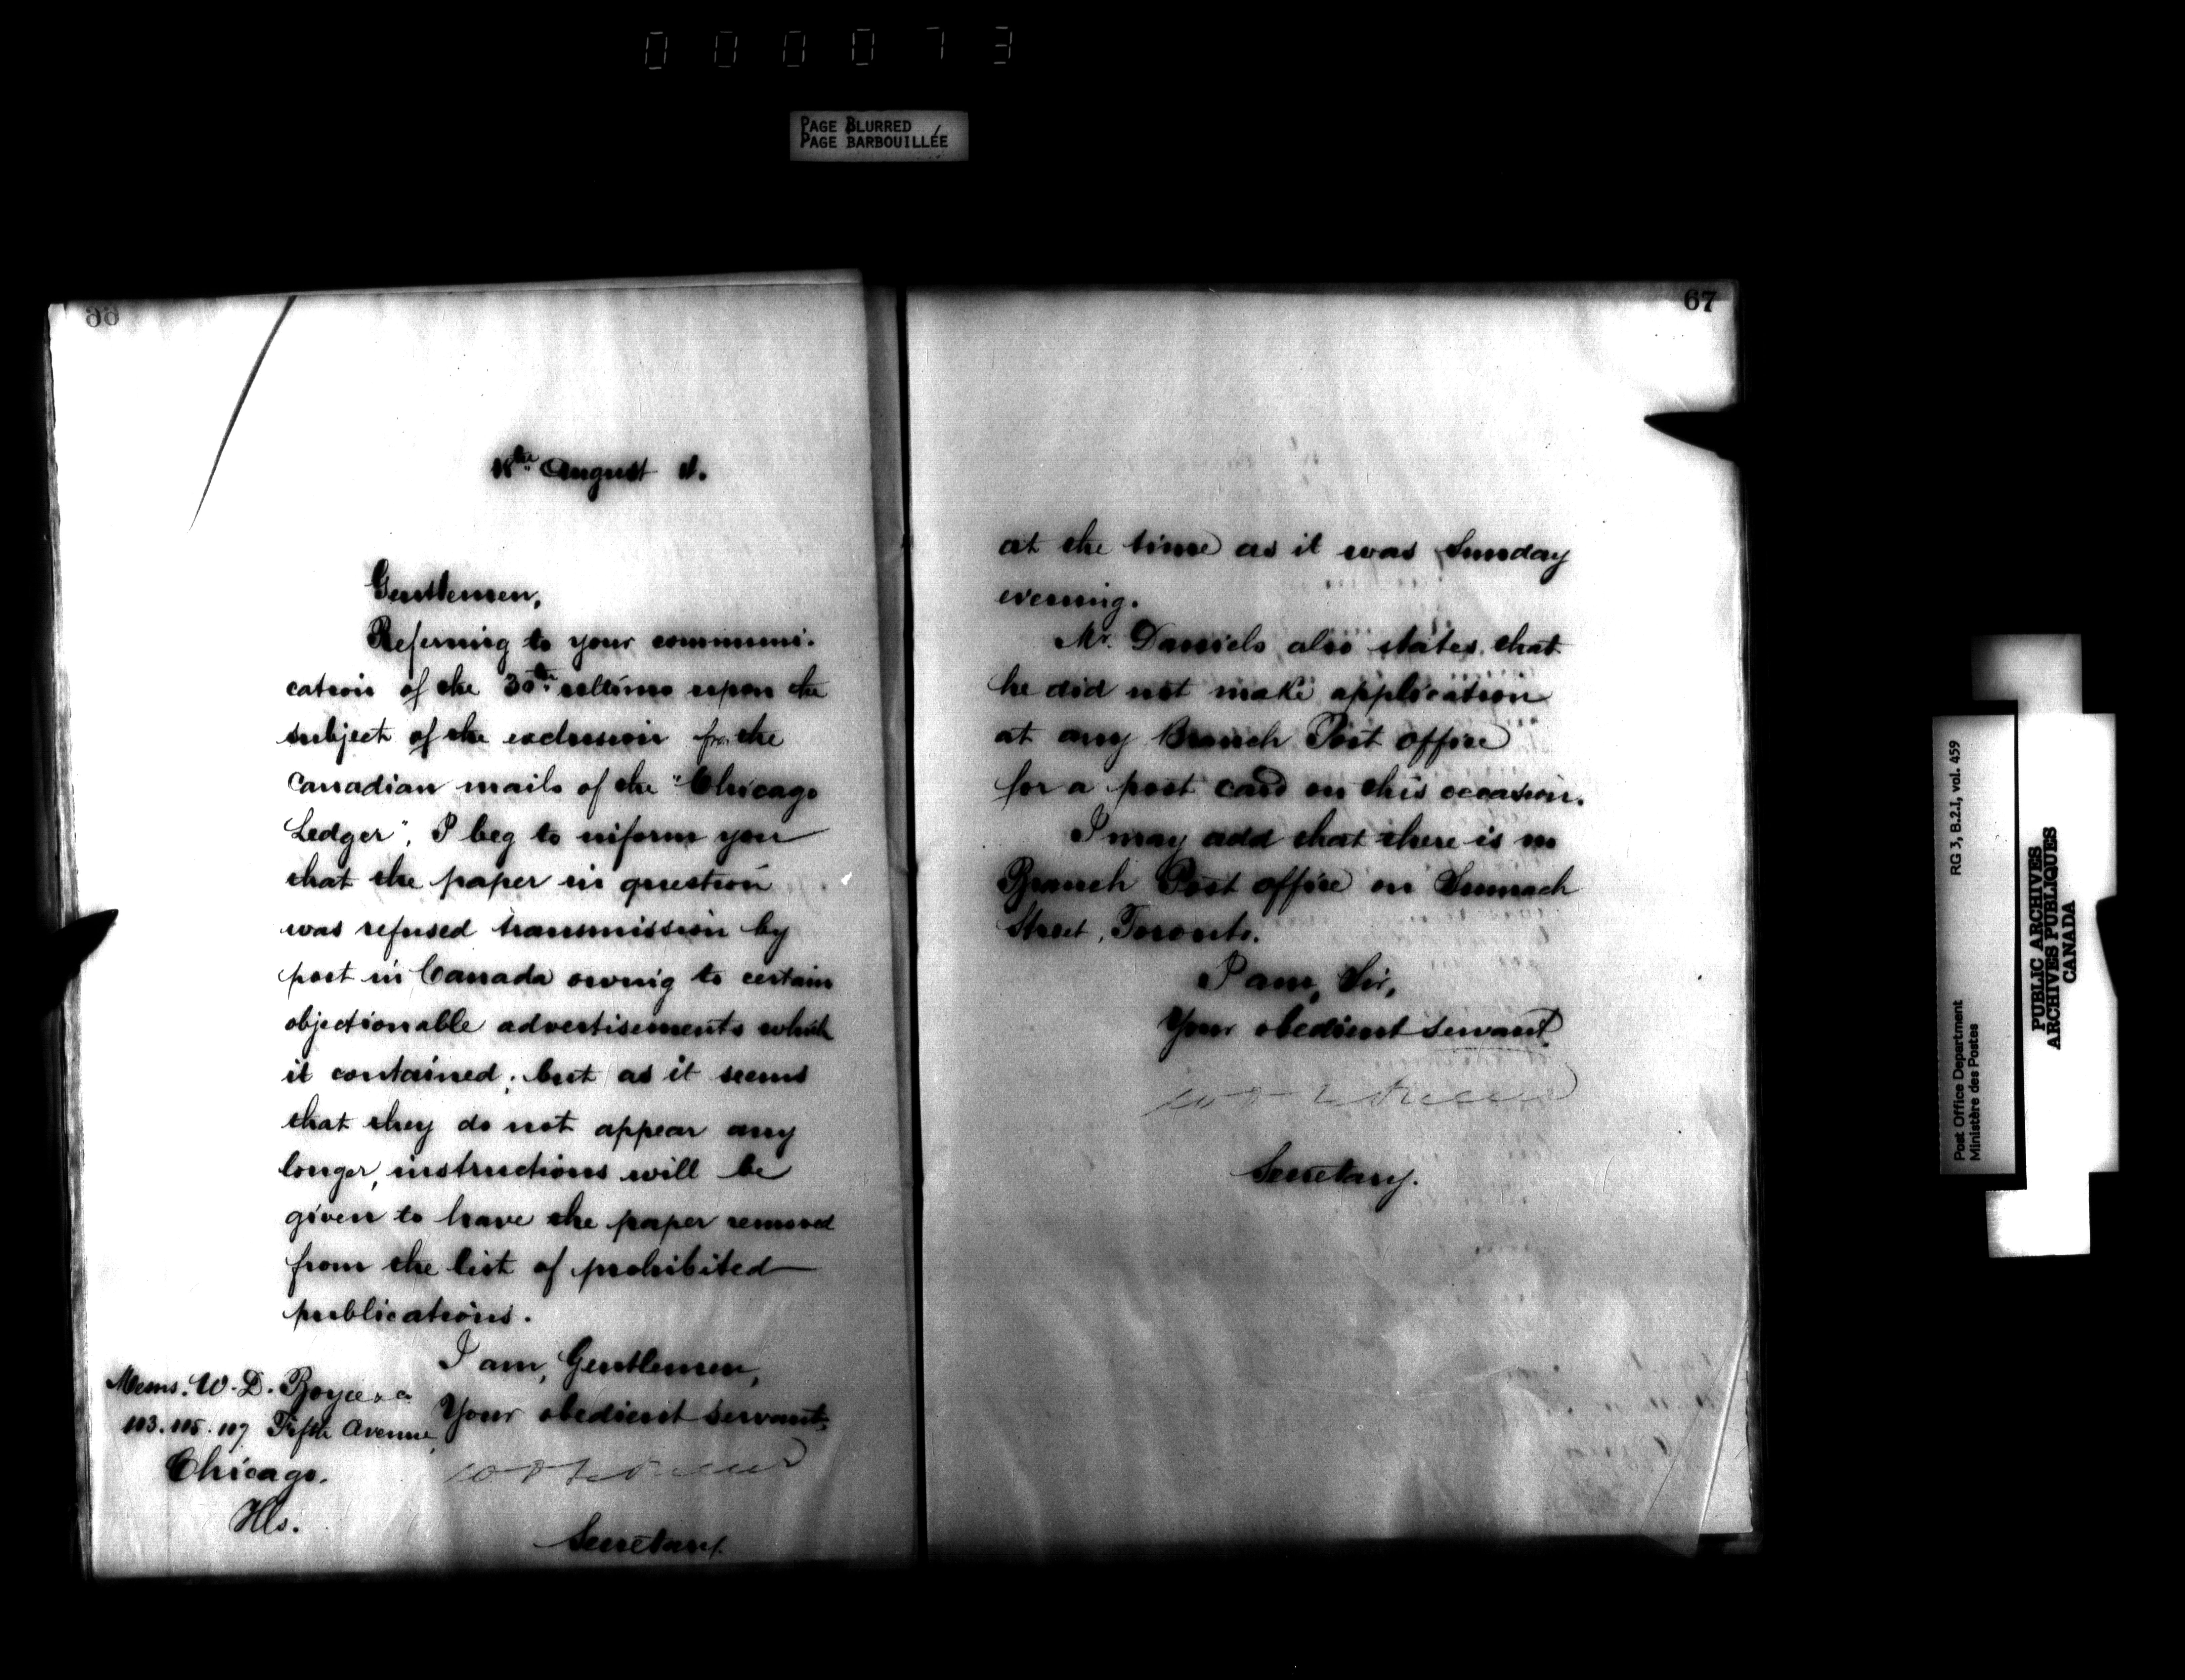 000073
PAGE BLURRED
PAGE BARBOUILLÉE
66
August
Gentlemen,
Referring to your communi-
cation of the 30th ultimo upon the
subject of the exclusion from the
Canadian mails of the "Chicago
Ledger", I beg to inform you
that the paper in question
was refused transmission by
post in Canada owing to certain
objectionable advertisements which
it contained; but as it seems
that they do not appear any
longer, instructions will be
given to have the paper removed
from the list of prohibited
publications.
I am, Gentlemen,
Your obedient servant,
Secretary.
Messrs. W. D. Boyce & Co
113. 115. 117 Fifth Avenue,
Chicago.
Ills.
67
at the time as it was Sunday
evening.
Mr. Daniels also states that
he did not make application
at any Branch Post Office
for a post card on this occasion.
I may add that there is no
Branch Post Office on Sumach
Street, Toronto.
I am, Sir,
Your obedient servant,
Secretary.
Post Office Department
Ministère des Postes
RG 3, B.2.I, vol. 459
PUBLIC ARCHIVES
ARCHIVES PUBLIQUES
CANADA